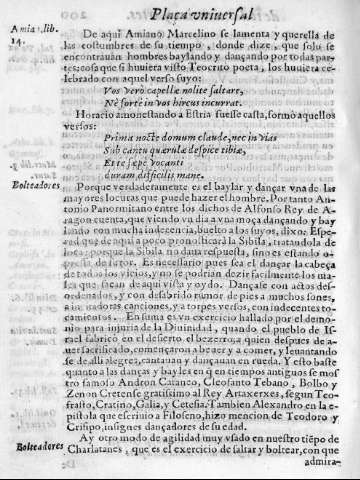 Plaça vniuersal
Amia . lib.
14.
De aqui Amiano Marcelino se lamenta y querella de
las costumbres de su tiempo, donde dize, que solo se
encontrauan hombres baylando y dançando por todas par-
tes; cosa que si huuiera visto Teocrito poeta, los huuiera ce-
lebrado con aquel verso suyo:
Vos verò capellæ nolite saltare,
Nè fortè in vos hircus incurrat.
Horacio amonestando a Estria fuesse casta, formò aquellos
versos:
Prima nocte domum claude, nec in vias
Sub cantu querulæ despice tibiæ,
Et te sæpe vocanti
duram difficilis mane.
Bolteadores
Porque verdaderamente es el baylar y dançar vna de las
mayores locuras que puede hazer el hombre. Por tanto An-
tonio Panormitano entre los dichos de Alfonso Rey de A-
ragon cuenta, que viendo vn dia a vna moça dançando y bay
lando con mucha indecencia, buelto a los suyos, dixo: Espe-
rad que de aqui a poco pronosticarà la Sibila, tratandola de
loca; porque la Sibila no daua respuesta, sino es estando o-
pressa de furor. Es necessario pues sea el dançar la cabeça
de todos los vicios, y no se podrian dezir facilmente los ma-
les que sacan de aqui vista y oydo. Dançase con actos des-
ordenados, y con desabrido rumor de pies a muchos sones,
a incitadoras canciones, y a torpes versos, con indecentes to-
camentos. En suma es vn exercicio hallado por el demo-
nio para injuria de la Diuinidad, quando el pueblo de Is-
rael fabricò en el desierto el bezerro, a quien despues de a-
uer sacrificado, començaron a beuer y a comer, y leuantando
se de alli alegres, cantauan y dançauan en rueda. Y esto baste
quanto a las danças y bayles en q en tiempos antiguos se mos
trò famoso Andron Cataneo, Cleofanto Tebano, Bolbo y
Zenon Cretense gratissimo al Rey Artaxerxes, segun Teo-
frasto, Cratino, Galia, y Cetesia. Tambien Alexandro en la e-
pistola que escriuio a Filoseno, hizo mencion de Teodoro y
Crisipo, insignes dançadores de su edad.
Bolteadores
Ay otro modo de agilidad muy vsado en nuestro tiẽpo de
Charlatanes, que es el exercicio de saltar y boltear, con que
admira-